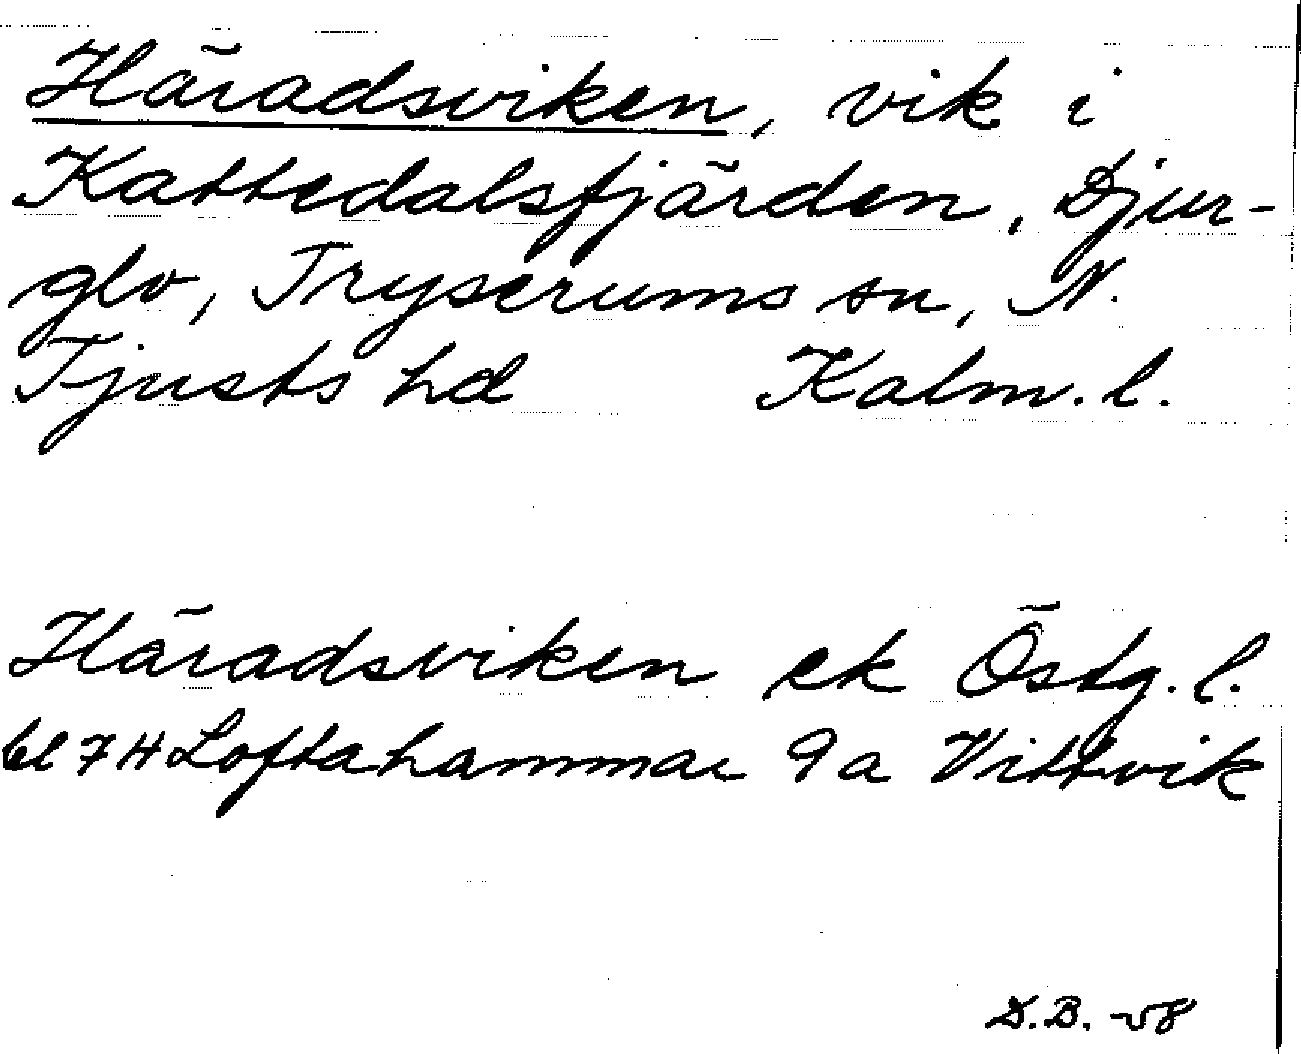 Häradsviken, vik i
Kattedalsfjärden, Djur-
glo, Tryserums sn, N.
Tjusts hd Kalm. l.
Häradsviken ek Östg. l.
bl 7 H Loftahammar 9a Vittvik
D.B. -58